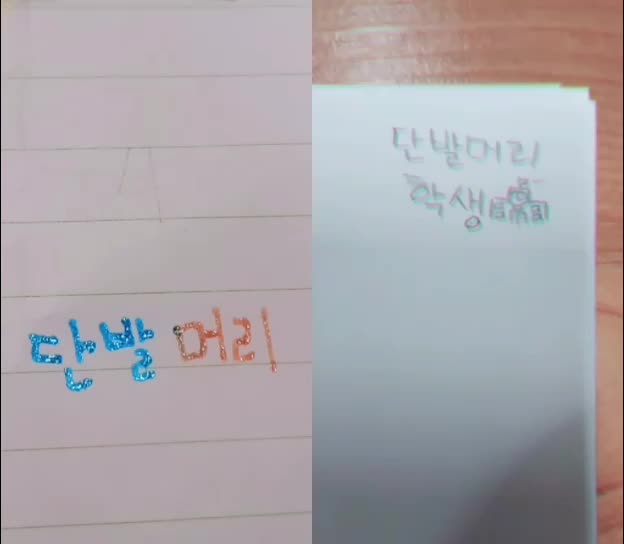 단발머리
단발머리
학생